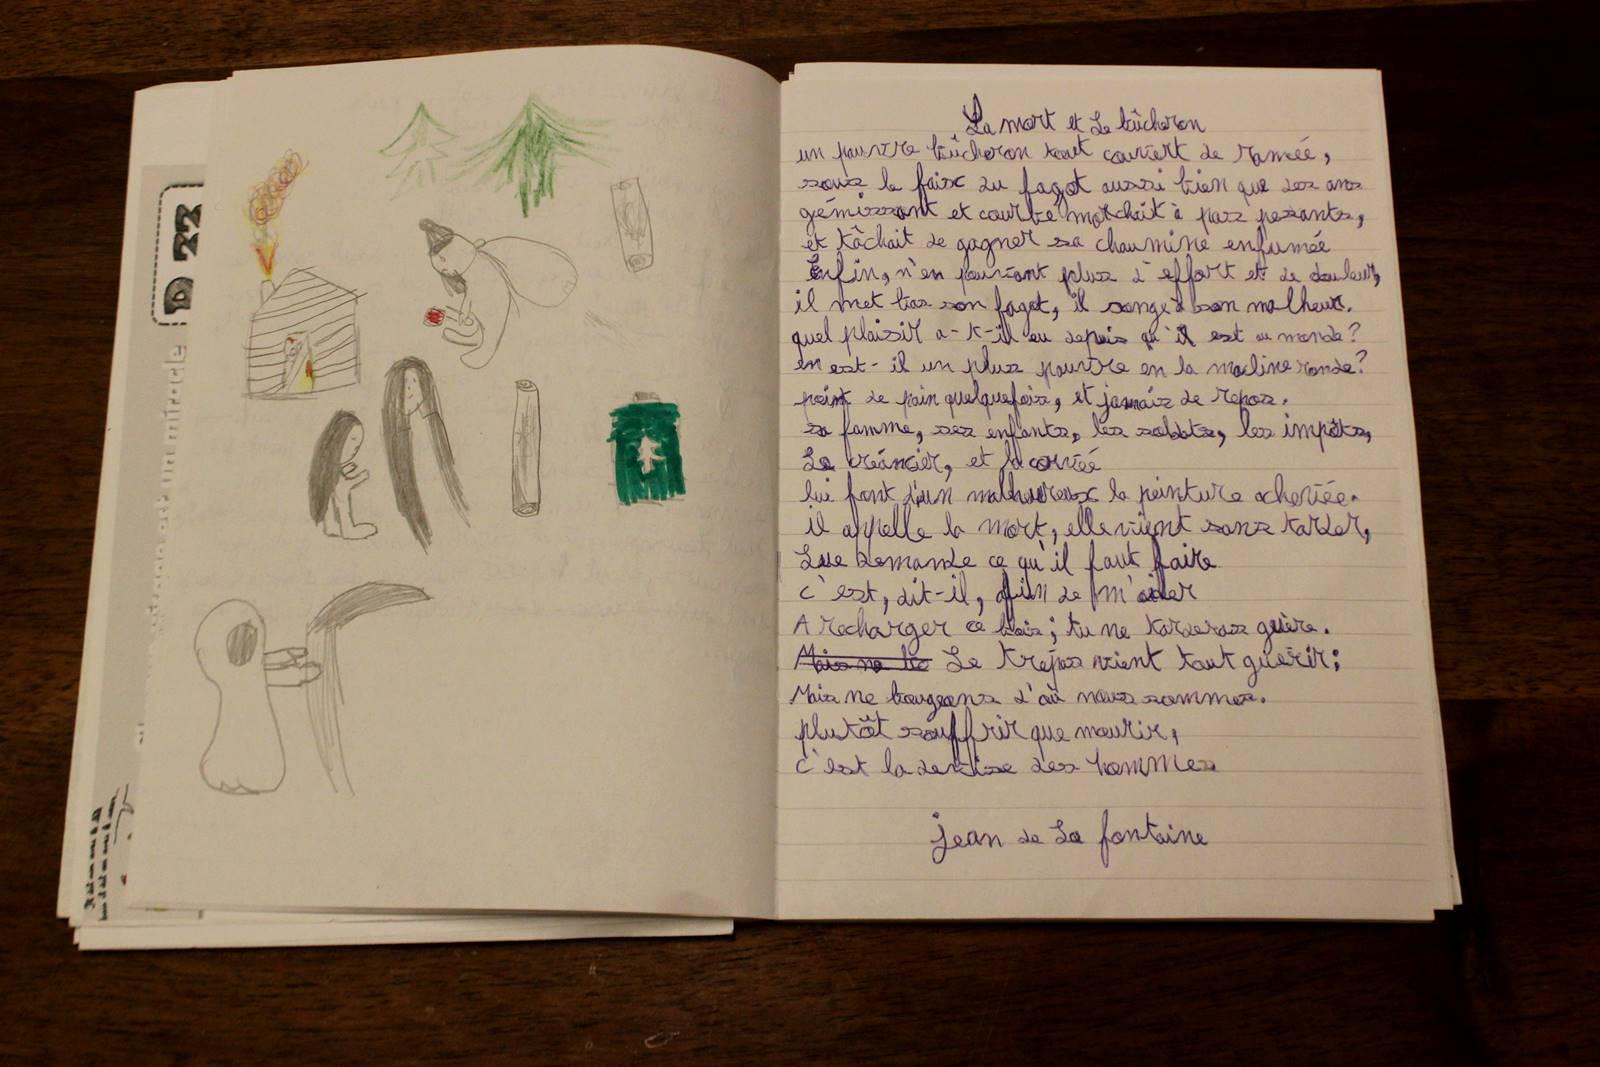 D 22
est un miracle
La mort et Le bûcheron
un pauvre bûcheron tout couvert de ramée,
sous le faix du fagot aussi bien que des ans
gémissant et courbé marchait à pas pesants,
et tâchait de gagner sa chaumine enfumée
Enfin, n'en pouvant plus d'effort et de douleur,
il met bas son fagot, il songe à son malheur.
quel plaisir a-t-il eu depuis qu'il est au monde?
en est-il un plus pauvre en la machine ronde?
point de pain quelquefois, et jamais de repos.
sa famme, ses enfants, les soldats, les impôts,
Le créancier, et la corvée
lui font d'un malheureux la peinture achevée.
il appelle la mort, elle vient sans tarder,
Lue demande ce qu'il faut faire
c'est, dit-il, afin de m'aider
A recharger ce bois; tu ne tarderas guère.
Le trépas vient tout guérir;
Mais ne bougeons d'où nous sommes.
plutôt souffrir que mourir,
c'est la devise des hommes
jean de La fontaine